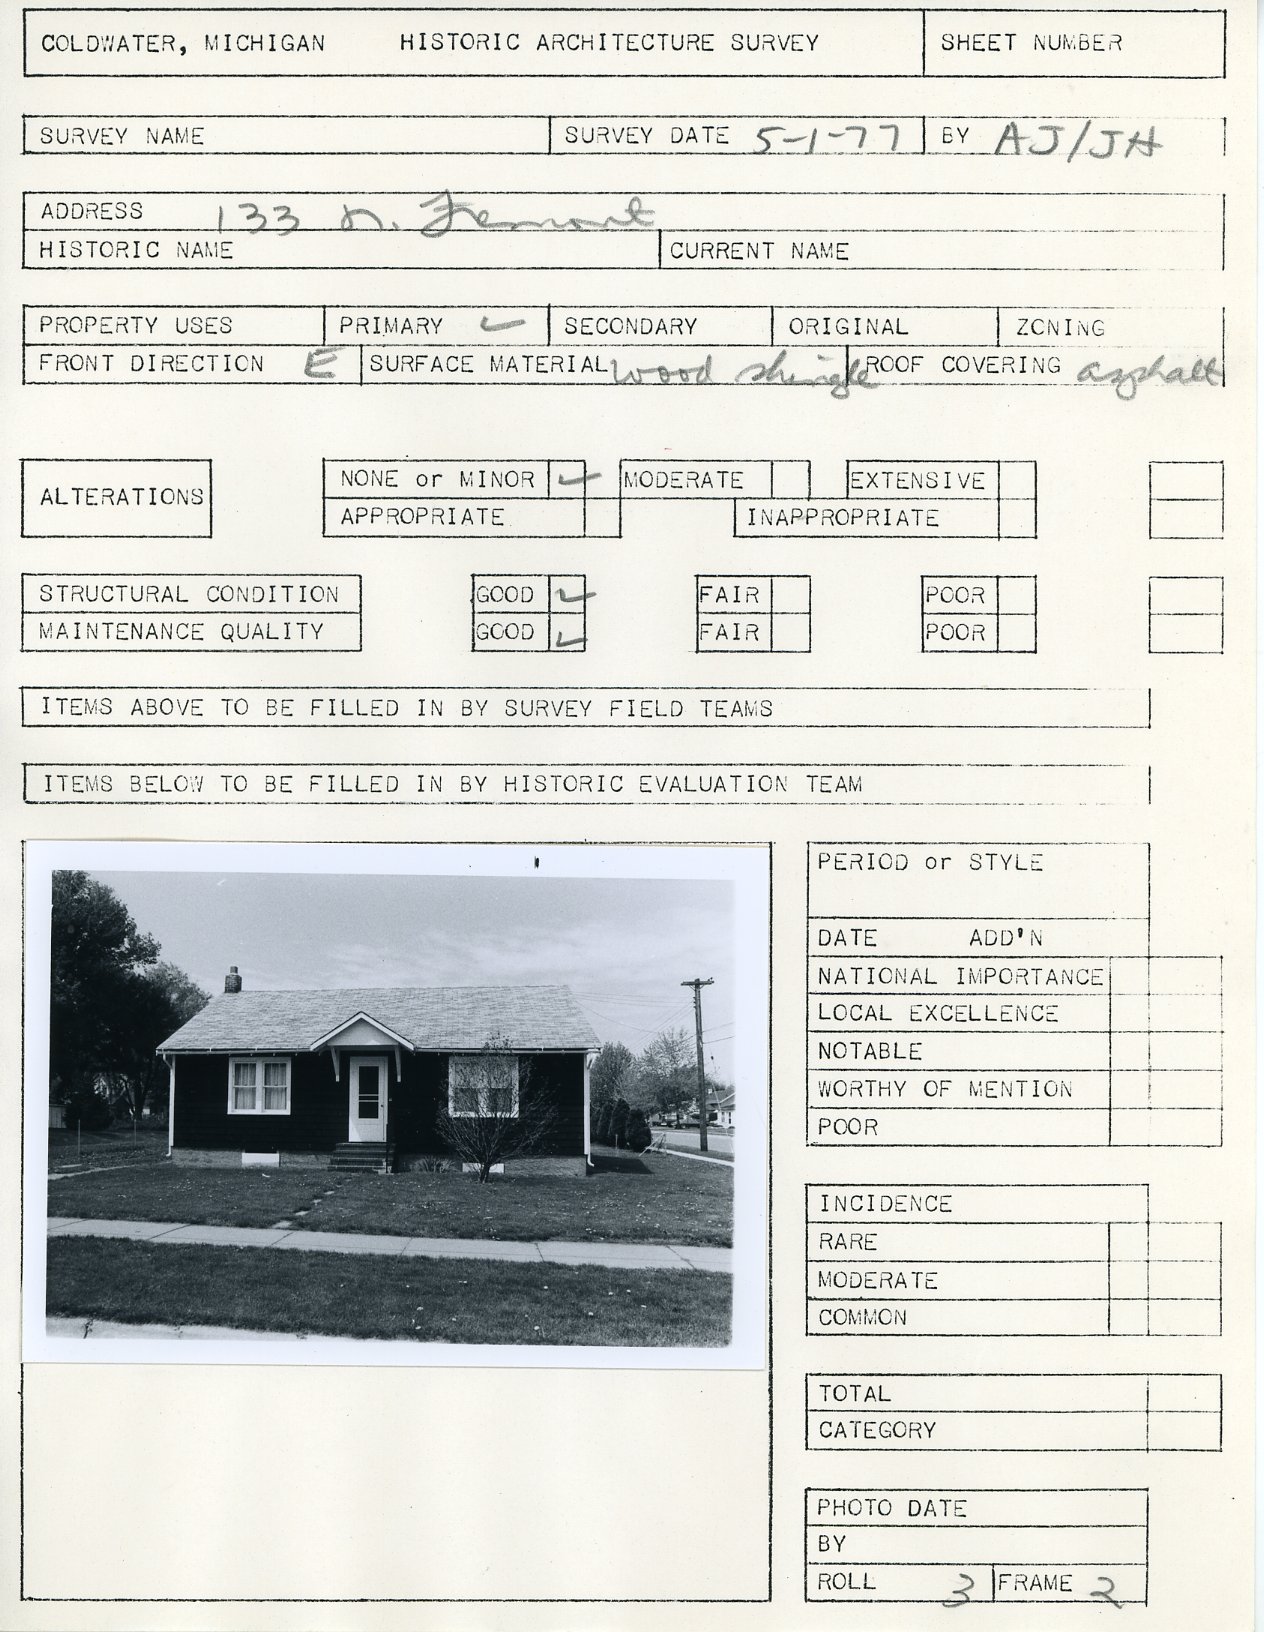 COLDWATER, MICHIGAN HISTORIC ARCHITECTURE SURVEY SHEET NUMBER
SURVEY NAME SURVEY DATE 5-1-77 BY AJ/JH
ADDRESS 133 N. Fremont
HISTORIC NAME CURRENT NAME
PROPERTY USES PRIMARY ✓ SECONDARY ORIGINAL ZONING
FRONT DIRECTION E SURFACE MATERIAL wood shingle ROOF COVERING asphalt
ALTERATIONS NONE or MINOR ✓ MODERATE EXTENSIVE
APPROPRIATE INAPPROPRIATE
STRUCTURAL CONDITION GOOD ✓ FAIR POOR
MAINTENANCE QUALITY GOOD ✓ FAIR POOR
ITEMS ABOVE TO BE FILLED IN BY SURVEY FIELD TEAMS
ITEMS BELOW TO BE FILLED IN BY HISTORIC EVALUATION TEAM
PERIOD or STYLE
DATE ADD'N
NATIONAL IMPORTANCE
LOCAL EXCELLENCE
NOTABLE
WORTHY OF MENTION
POOR
INCIDENCE
RARE
MODERATE
COMMON
TOTAL
CATEGORY
PHOTO DATE
BY
ROLL 3 FRAME 2